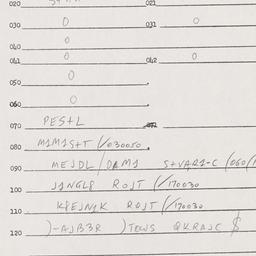 020
021
030 0 031 0
040 0
041 042 0
050 0
060 0
070 PEStL
080 M1M1StT (/030050
090 MEJDL/DAM1 StVAR1-C (060/1
100 J1NGL8 ROJT (/170030
110 KPEJN1K ROJT (/170030
120 )-AJB3R )TEWS QKRAJC $